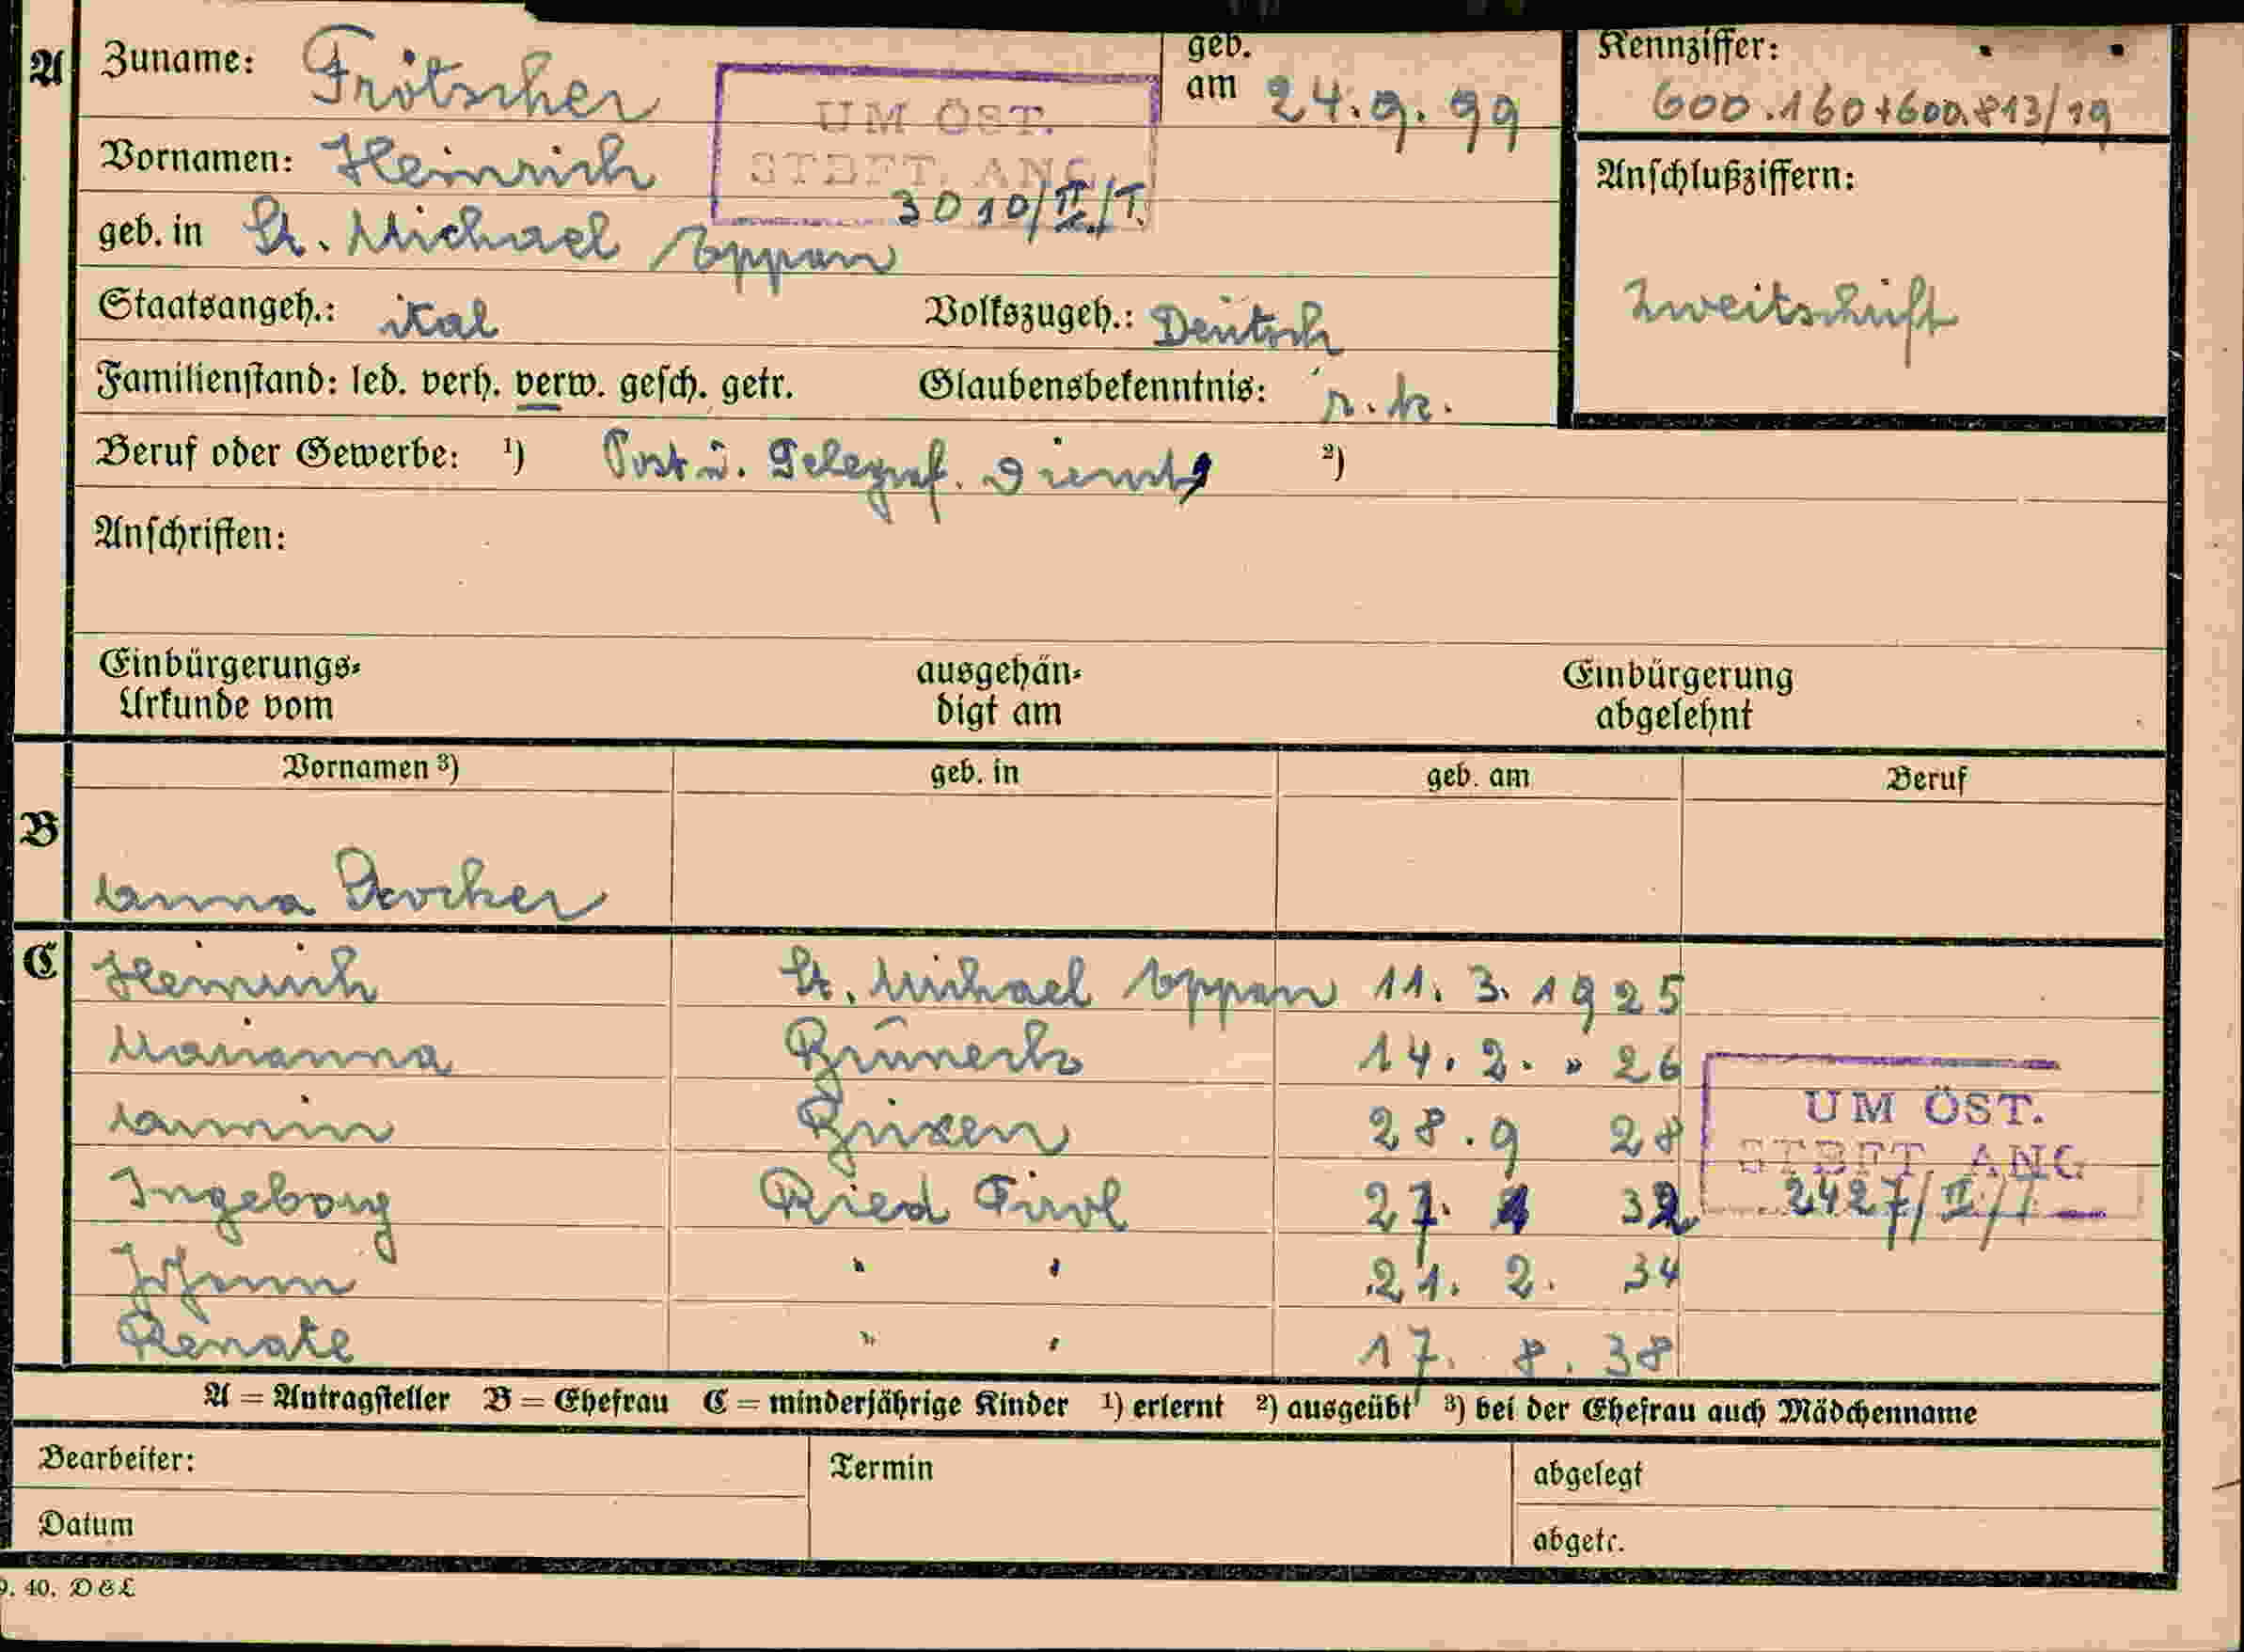 A Zuname: Frötscher geb. am 24.9.99 Kennziffer: 600.160+600.813/19
UM ÖST.
STBFT. ANG.
3010/II/T.
Vornamen: Heinrich
Anschlußziffern:
geb. in St. Michael Eppan
Zweitschrift
Staatsangeh.: ital Volkszugeh.: Deutsch
Familienstand: led. verh. verw. gesch. getr. Glaubensbekenntnis: r. k.
Beruf oder Gewerbe: 1) Post u. Telegraf. Dienst 2)
Anschriften:
Einbürgerungs- ausgehän- Einbürgerung
Urkunde vom digt am abgelehnt
Vornamen 3) geb. in geb. am Beruf
B
Anna Stocker
C Heinrich St. Michael Eppan 11. 3. 1925
Marianna Bruneck 14. 2. " 26
Armin Brixen 28. 9 28
Ingeborg Ried Tirol 27. 1 32
UM ÖST.
STBFT. ANG
2427/II/T
Johann " " 21. 2. 34
Renate " " 17. 8. 38
A = Antragsteller B = Ehefrau C = minderjährige Kinder 1) erlernt 2) ausgeübt 3) bei der Ehefrau auch Mädchenname
Bearbeiter: Termin abgelegt
Datum abgetr.
9. 40. D&L